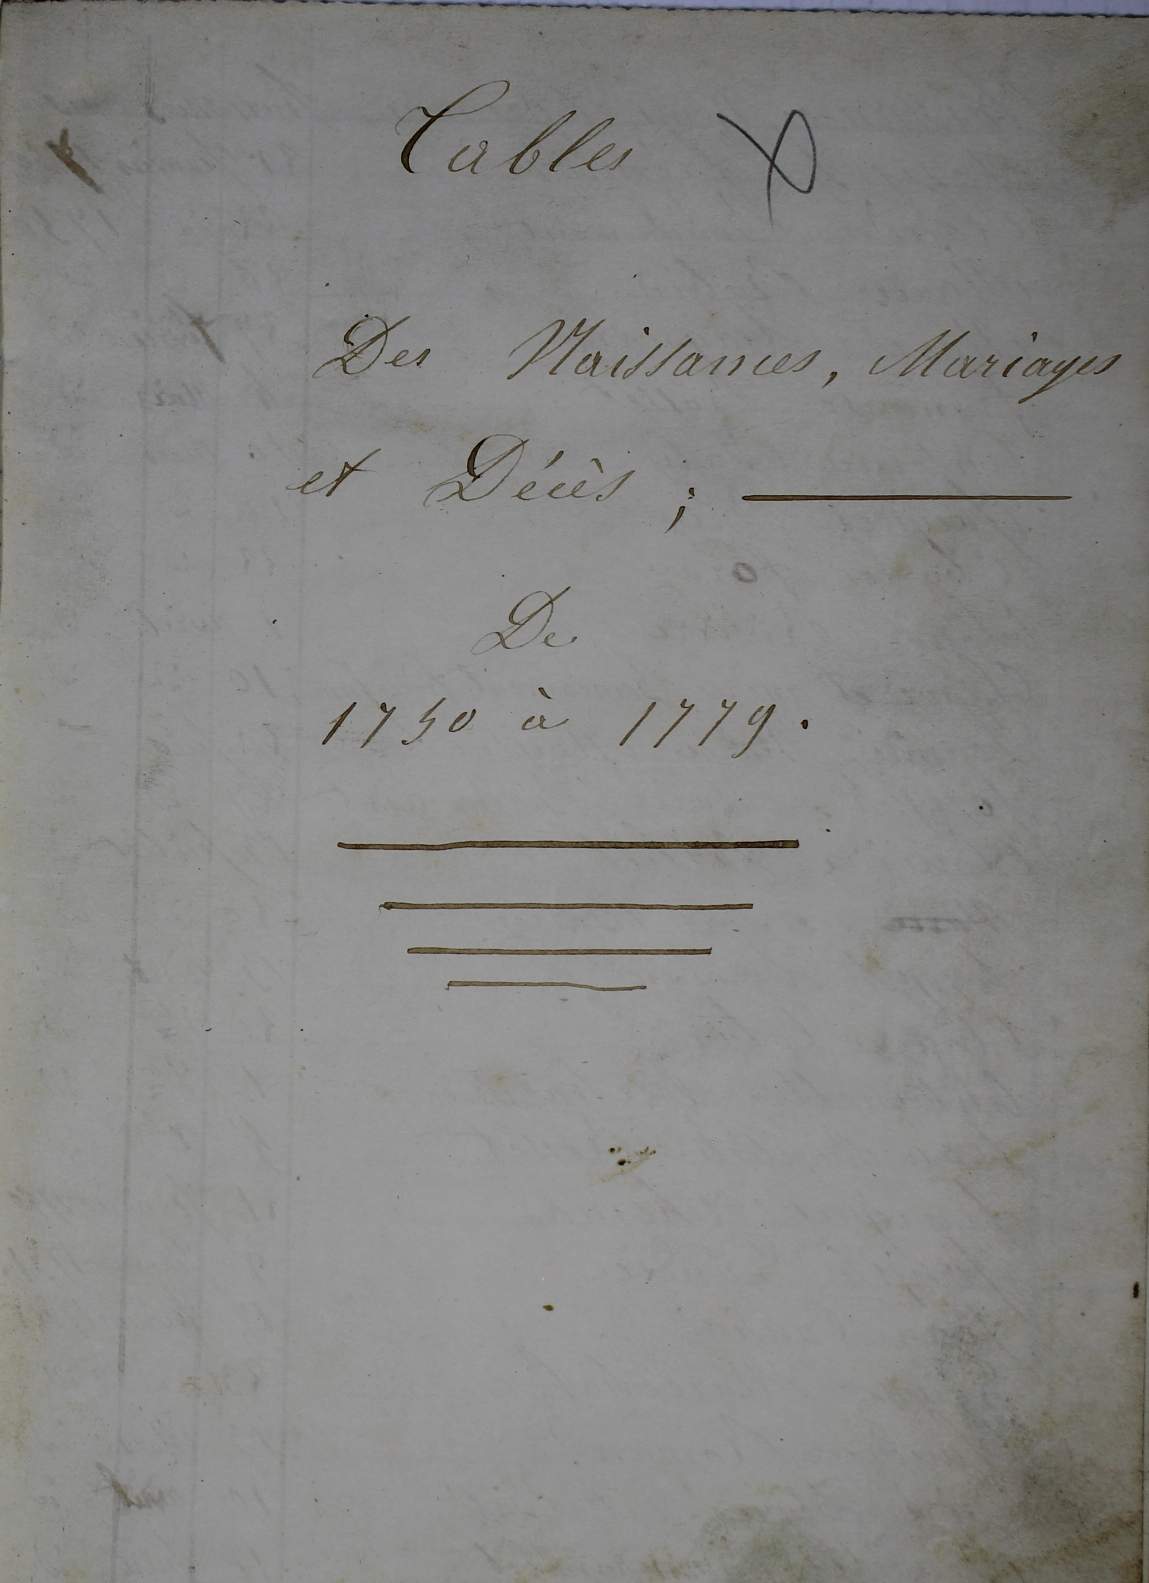 Tables
Des Naissances, Mariages
et Décès ;
De
1750 à 1779.